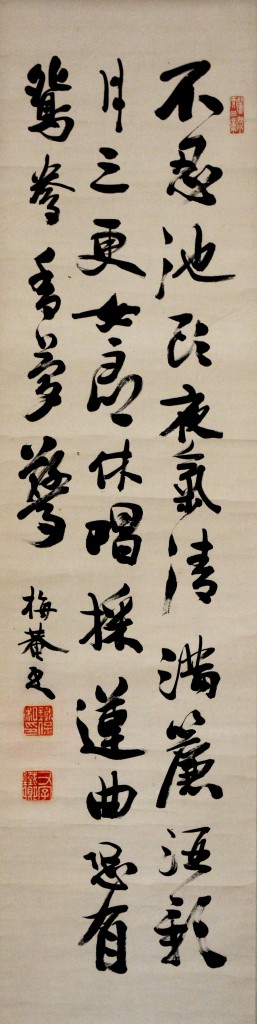 不忍池頭夜氣清滿簾涵影
月三更女郎休唱採蓮曲恐有
鴛鴦香夢驚
梅菴